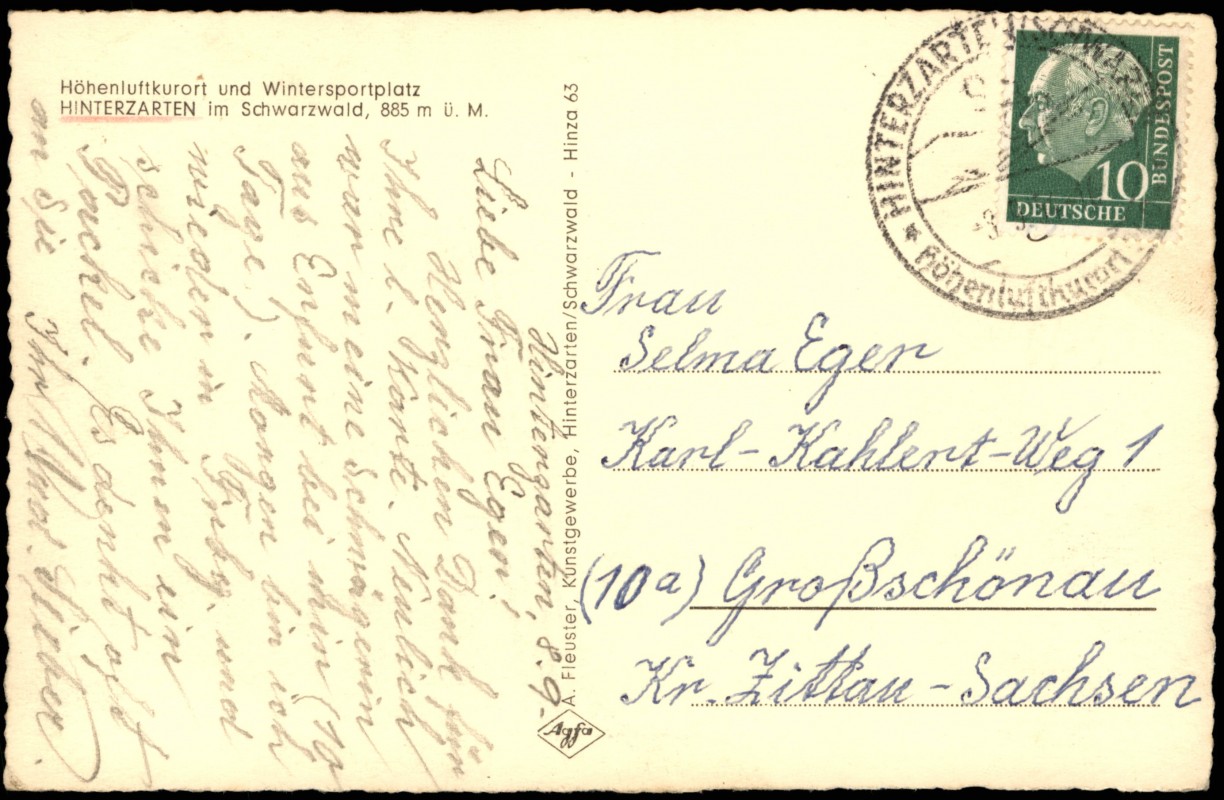 Höhenluftkurort und Wintersportplatz
HINTERZARTEN im Schwarzwald, 885 m ü. M.
Hinterzarten, 8.9.
Liebe Frau Eger!
Herzlichen Dank für
Ihre l. Karte. Neulich
war meine Schwägerin
aus Erfurt bei mir (19
Tage). Morgen bin ich
wieder in Frbg. und
schicke Ihnen ein
Packel. Es denkt oft
an Sie
Ihre
A. Fleuster, Kunstgewerbe, Hinterzarten/Schwarzwald - Hinza 63
Agfa
HINTERZARTEN (SCHWARZW
Höhenluftkurort
DEUTSCHE
BUNDESPOST
10
Frau
Selma Eger
Karl-Kahlert-Weg 1
(10a) Großschönau
Kr. Zittau - Sachsen